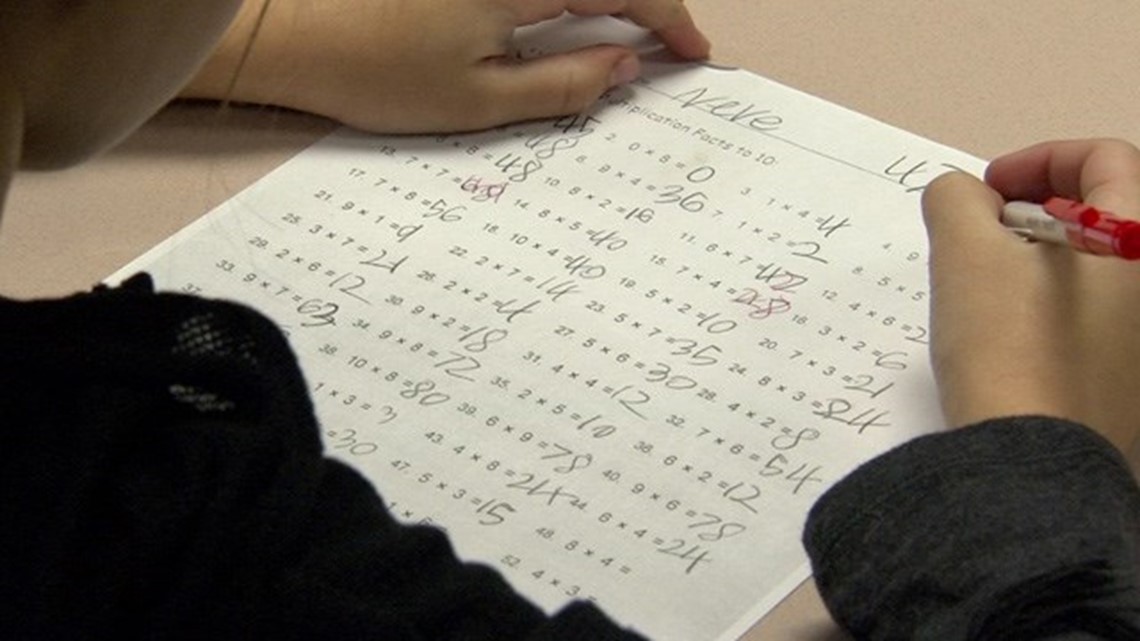 Neve
Multiplication Facts to 10:
45 2. 0 × 8 = 0 3. 1 × 4 = 4 4. 9
48 6. 9 × 4 = 36 7. 1 × 2 = 2 8. 5 × 5
× 8 = 48 10. 8 × 2 = 16 11. 6 × 7 = 42 12. 4 × 6 = 2
13. 7 × 7 = 14. 8 × 5 = 40 15. 7 × 4 = 28 16. 3 × 2 = 6
17. 7 × 8 = 56 18. 10 × 4 = 40 19. 5 × 2 = 10 20. 7 × 3 = 21
21. 9 × 1 = 9 22. 2 × 7 = 14 23. 5 × 7 = 35 24. 8 × 3 = 24
25. 3 × 7 = 21 26. 2 × 2 = 4 27. 5 × 6 = 30 28. 4 × 2 = 8
29. 2 × 6 = 12 30. 9 × 2 = 18 31. 4 × 4 = 12 32. 7 × 6 = 54
33. 9 × 7 = 63 34. 9 × 8 = 72 35. 2 × 5 = 10 36. 6 × 2 = 12
37. 38. 10 × 8 = 80 39. 6 × 9 = 78 40. 9 × 6 = 78
1 × 3 = 3 43. 4 × 6 = 24 44. 6 × 4 = 24
= 30 47. 5 × 3 = 15 48. 8 × 4 =
1 × 6 52. 4 × 3 =